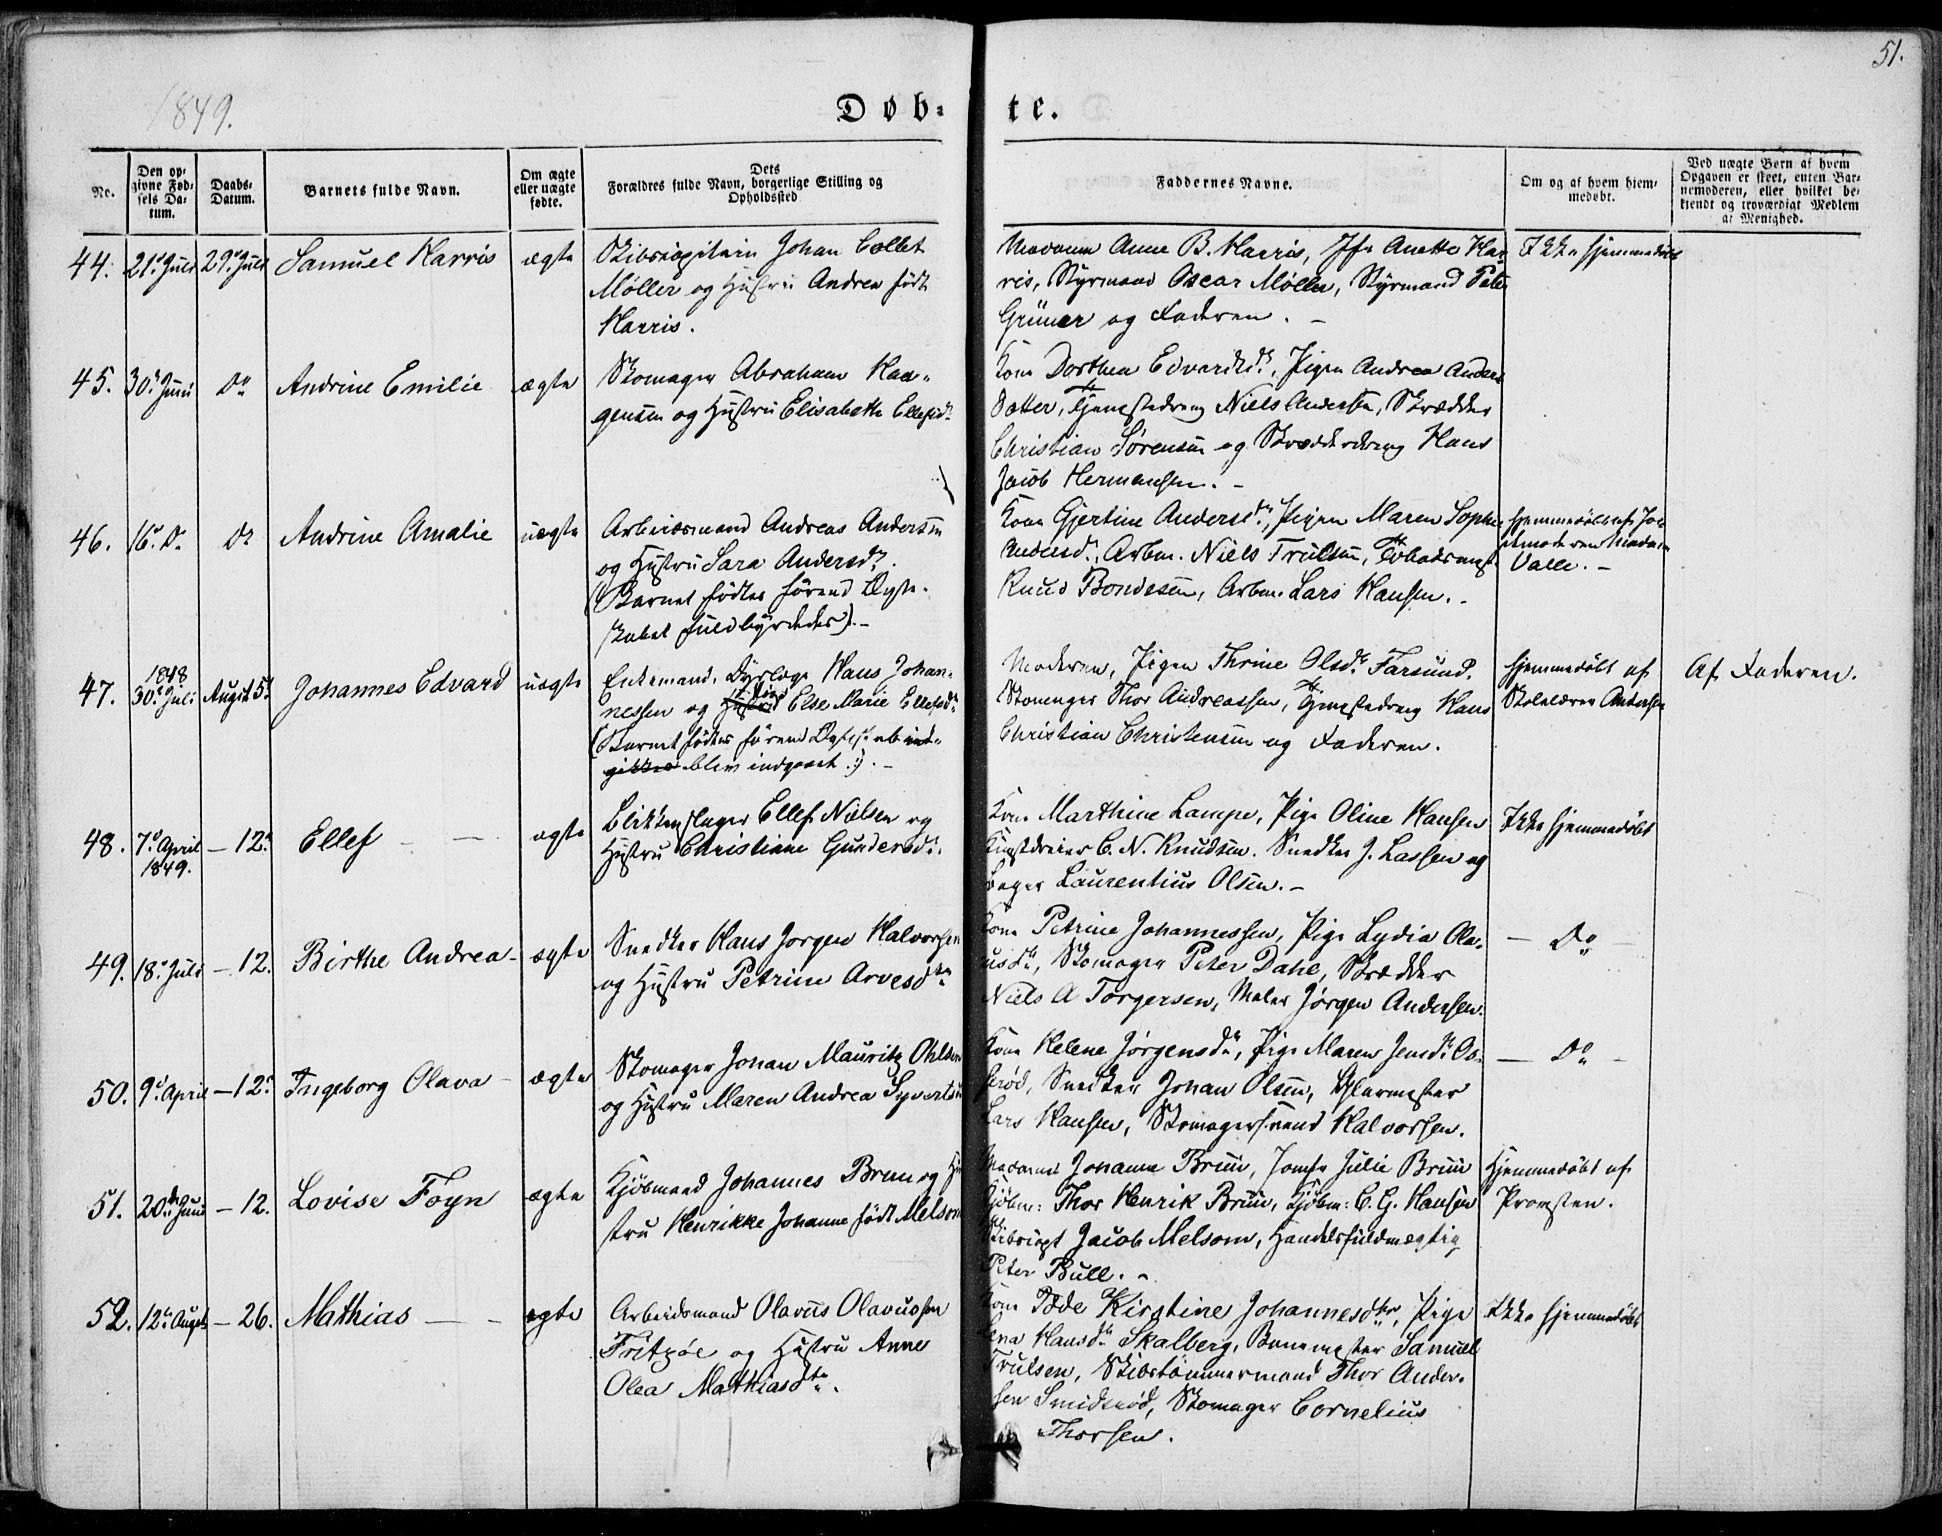 51.
1849.
Døb-
te.
No.
Den op-
givne Fød-
sels Da-
tum.
Daabs-
Datum.
Barnets fulde Navn.
Om ægte
eller uægte
fødte.
Dets
Forældres fulde Navn, borgerlige Stilling og
Opholdssted
Faddernes Navne.
Om og af hvem hjem-
medøbt.
Ved uægte Børn af hvem
Opgaven er skeet, enten Bar-
nemoderen, eller hvilket be-
kjendt og troværdigt Medlem
af Menighed.
44. 21de Juli 29de Juli Samuel Harris ægte
Skibscapitain Johan Collet
Møller og Hustru Andrea født
Harris.
Madame Anne B. Harris, Jfr Anette Har-
ris, Styrmand Oscar Møller, Styrmand Peter
Grüner og Faderen. -
Ikke hjemmedøbt
45. 30te Juni Do Andrine Emilie ægte
Skomager Abraham Haa-
gensen og Hustru Elisabeth Ellefsdr
Kone Dorthea Edvardsdr, Pigen Andrea Anders
datter, Tjenestedreng Niels Andersen, Skrædder
Christian Sørensen og Skrædderdreng Hans
Jacob Hermansen. -
46. 16de Do Do Andrine Amalie uægte
Arbeidsmand Andreas Andersen
og Hustru Sara Andersdr.
(Barnet fødtes førend Ægte-
skabet fuldbyrdedes). -
Kone Gjertine Andersdtr, Pigen Maren Sophie
Andersdr, Arbm. Niels Trulsen, Tobaksmgst.
Knud Bondesen, Arbm. Lars Hansen. -
hjemmedøbt af Jor
demoderen Madam
Valle. -
47. 1848
30te Juli August 5te Johannes Edvard uægte
Enkemand, Dyrlæge Hans Johan-
nessen og Hustru Pige Else Marie Ellefsdr
(Barnet fødtes førend Ægtesk ab ind-
gikkes blev indgaaet :). -
Moderen, Pigen Thrine Olsdr Farsund,
Skomager Thor Andreassen, Tjenestedreng Hans
Christian Christensen og Faderen.
hjemmedøbt af
Skolelærer Andersen
Af Faderen.
48. 7de April
1849. - 12te Ellef - - ægte
Blikkenslager Ellef Nielsen og
Hustru Christiane Gundersdr.
Kone Marthine Lampe, Pige Oline Hansen
Kunstdreier C. N. Knudsen. Snedker J. Lassen og
Bager Laurentius Olsen. -
Ikke hjemmedøbt
49. 18de Juli - 12. Birthe Andrea - ægte
Snedker Hans Jørgen Halvorsen
og Hustru Petrine Arvesdtr
Kone Petrine Johannessen, Pige Lydia Ola-
usdtr, Skomager Peter Dahl, Skrædder
Niels A Torgersen, Maler Jørgen Andersen.
- Do -
50. 9de April - 12te Ingeborg Olava - ægte
Skomager Johan Mauritz Ohlsen
og Hustru Maren Andrea Syvertsen
Kone Helene Jørgensdr, Pige Maren Jensdr Oo-
serød, Snedker Johan Olsen, Glarmester
Lars Hansen, Skomagersvend Halvorsen.
- Do -
51. 20de Juni - 12. Lovise Foyn ægte
Kjøbmand Johannes Bruun og Hu
stru Henrikke Johanne født Melsom
Madame Johanne Bruun, Jomfr Julie Bruun
Kjøbm: Thor Henrik Bruun, Kjøbm: C. G. Hansen
Skibscapt Jacob Melsom, Handelsfuldmægtig
Peter Bull. -
Hjemmedøbt af
Provsten.
52. 12te August - 26. Mathias - - ægte
Arbeidsmand Olavus Olavussen
Fritzøe og Hustru Anne
Olea Mathiasdtr.
Kone Tøde Kirstine Johannesdtr, Pige
Lena Hansdr Skalberg, Baademester Samuel
Trulsen, Skibstømmermand Thor Ander-
sen Smidsrød, Skomager Cornelius
Thorsen.
Ikke hjemmedøbt